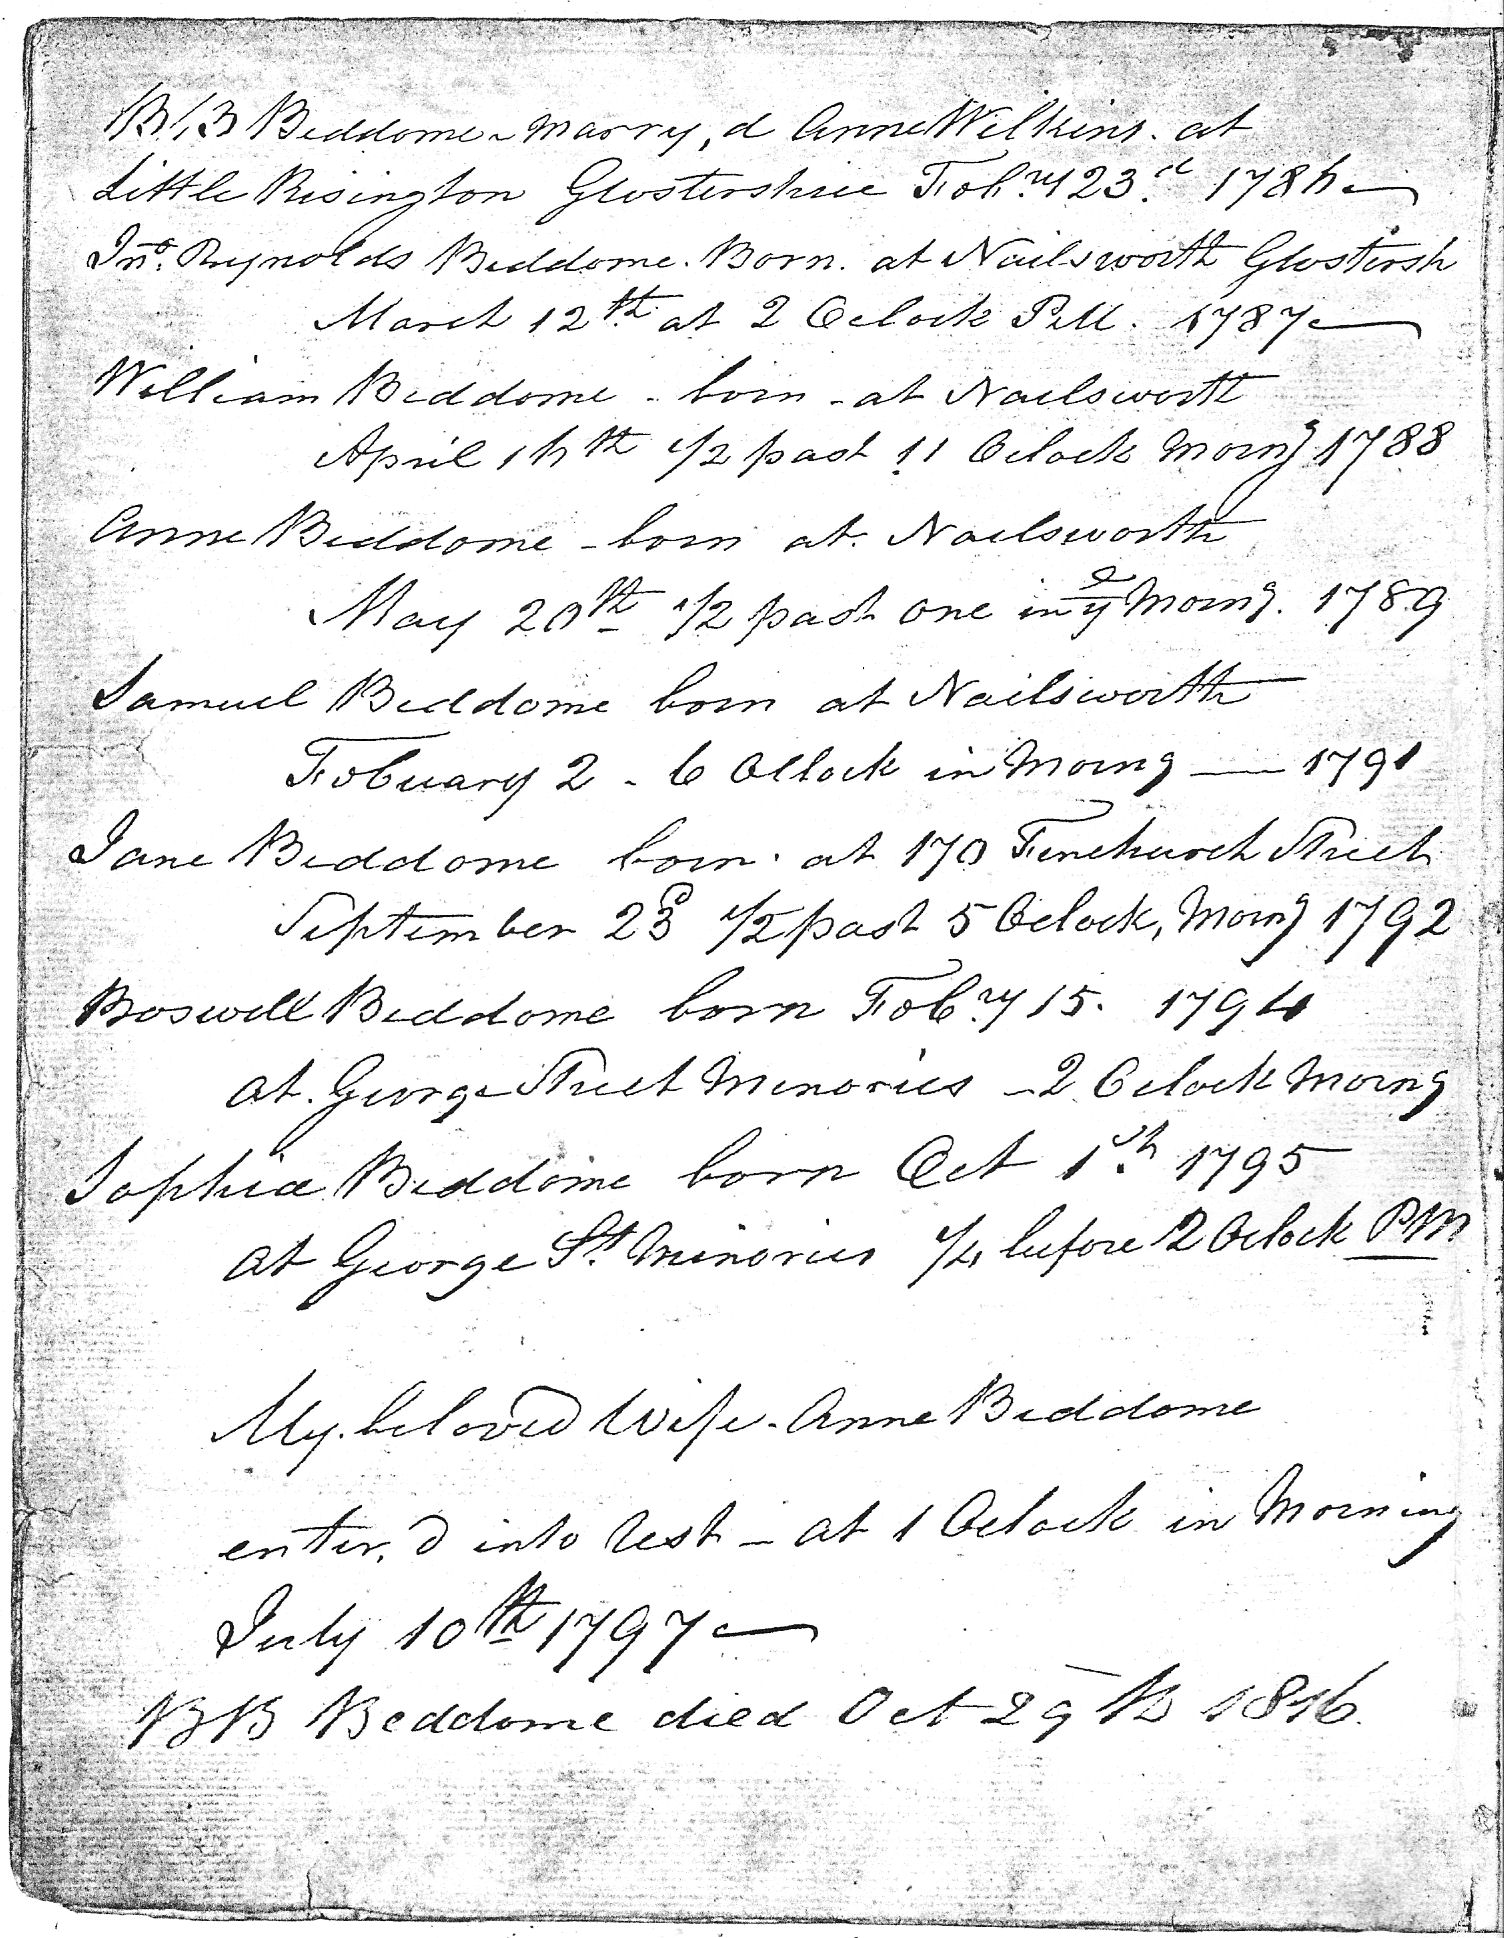 B,B Beddome - Marry,d Anne Wilkins. at
Little Risington Glostershire Feb.ry 23.d 1786
Jno. Reynolds Beddome. Born. at Nailsworth Glostersh
March 12th at 2 Oclock P.M. 1787
William Beddome - born - at Nailsworth
April 16th 1/2 past 11 Oclock Morng 1788
Anne Beddome - born at Nailsworth
May 20th 1/2 past one in ye Morng. 1789
Samuel Beddome born at Nailsworth
Febuary 2 - 6 Oclock in Morng — 1791
Jane Beddome born. at 170 Fenchurch Street
September 23d 1/2 past 5 Oclock, Morng 1792
Boswell Beddome born Feb.ry 15. 1794
at. George Street Minories - 2 Oclock Morng
Sophia Beddome born Oct 1st 1795
at George St. Minories 1/4 before 2 Oclock PM
My. beloved Wife - Anne Beddome
enter,d into rest - at 1 Oclock in Morning
July 10th 1797
BB Beddome died Oct 29th 1816.